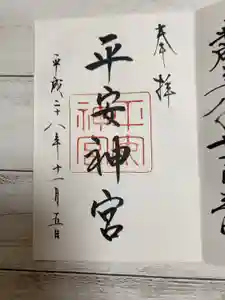 奉拝
平安神宮
平安神宮
平成二十八年十一月五日